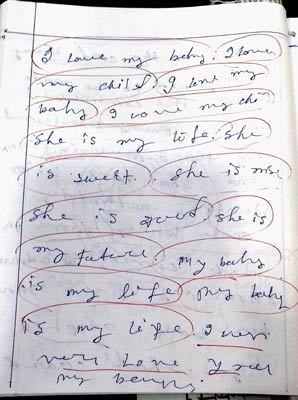 I Love my baby. I love
my child. I love my
baby I Love my chil
She is my life. She
is sweet. She is nise
She is good. She is
my future. my baby
is my life my baby
is my life. I veri
veri Love you
my